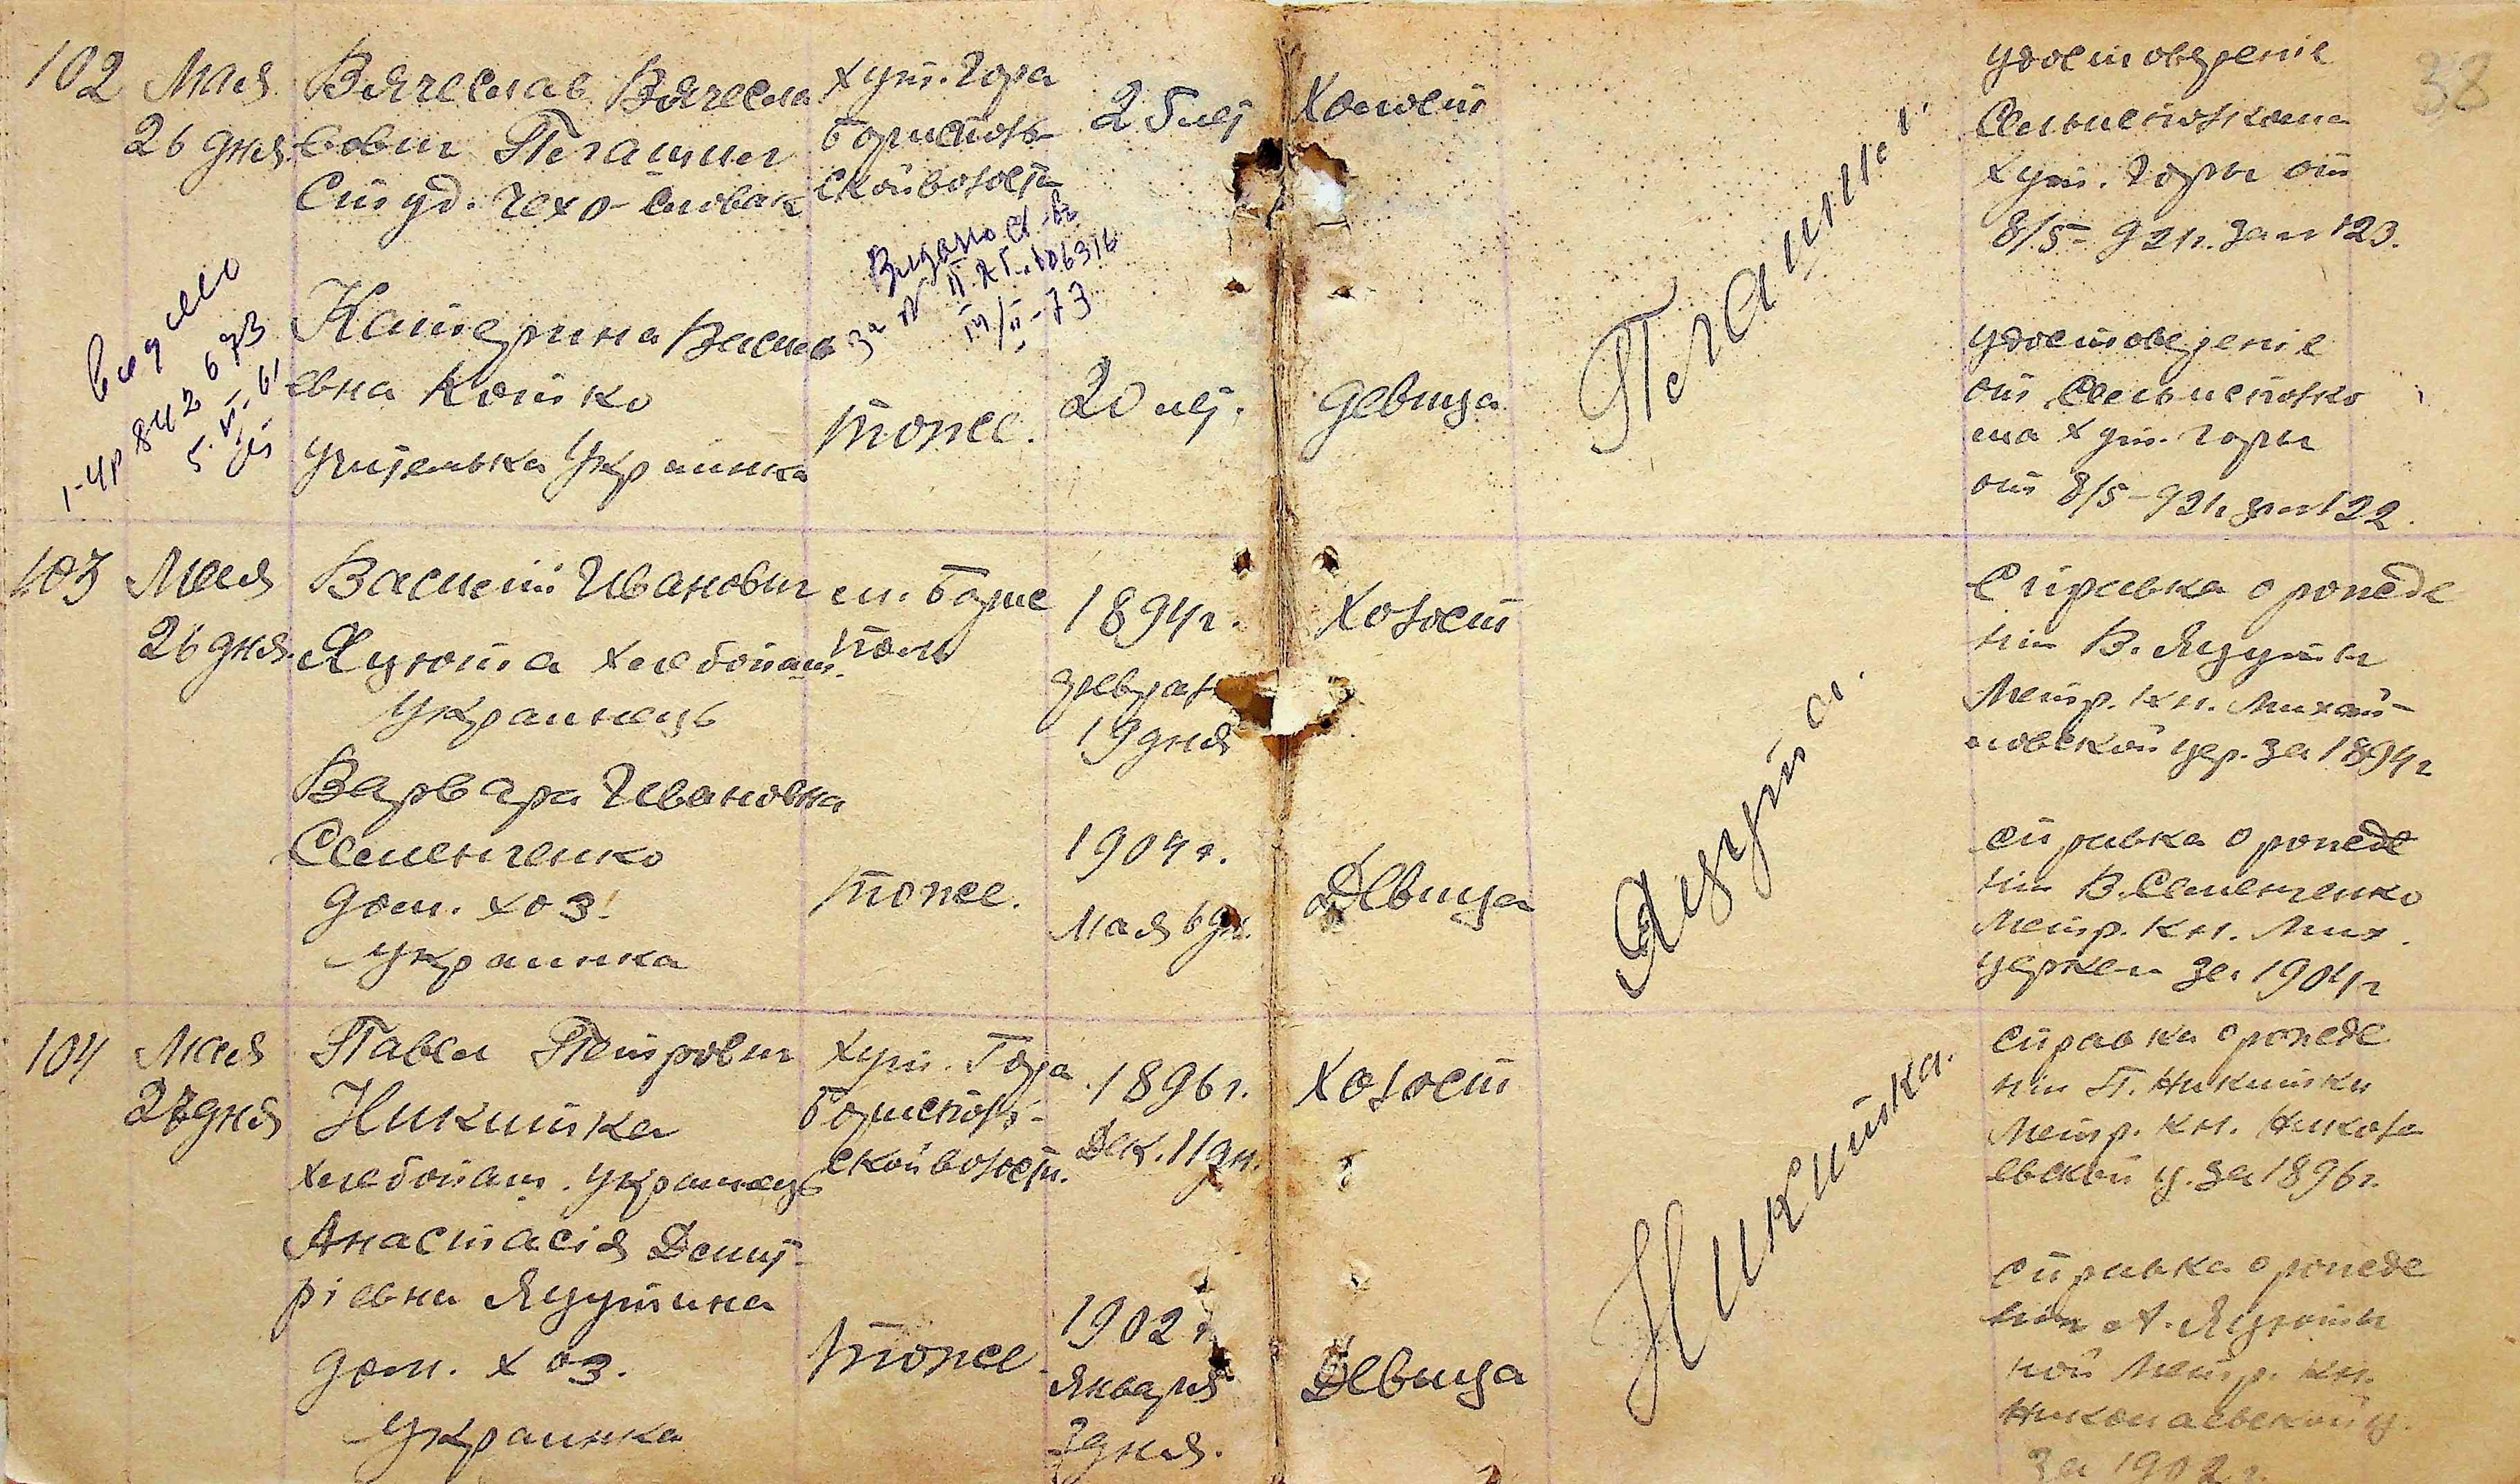 38
102
Мая
26 дня
Вячеслав Вячесла
вович Печацкий
Студ. Чехо-Словак
хут. Гора
Бориспол-
ской волости
25 лет
Холост
удостоверение
Сельисполкома
хут. Горы от
8/5- 92 г. за № 123.
Выдано
за № 106316
Катерина Василь
евна Кошко
учителька Украинка
тоже.
20 лет.
девица
удостоверение
от Сельисполко
ма хут. Горы
от 8/5-92 г. за № 122.
103
Мая
26 дня
Василий Иванович
Ядута хлебопаш.
Украинець
м. Борис
поль
1894 г.
февраля
19 дня
Холост
Справка о рожде
нии В. Ядуты
Метр. кн. Михай-
ловской цер. за 1894 г
Варвара Ивановна
Семенченко
дом. хоз.
Украинка
тоже.
1904 г.
Мая 6 дн.
Девица
Ядута.
справка о рожде
нии В. Семенченко
Метр. Кн. Мих.
церкви за 1904 г
104
Мая
27 дня
Павел Петрович
Никитка
хлебопаш. Украинець
хут. Гора
Бориспол-
ской волости.
1896 г.
Дек. 11 дн.
Холост
Никитка.
справка о рожде
нии П. Никитки
Метр. кн. Никола
евской ц. за 1896 г.
Анастасiя Демит-
рiевна Ядутина
дом. хоз.
Украинка
тоже
1902 г
января
2 дня.
Девица
справка о рожде
нии А. Ядути
ной Метр. кн.
Николаевской ц.
за 1902 г.